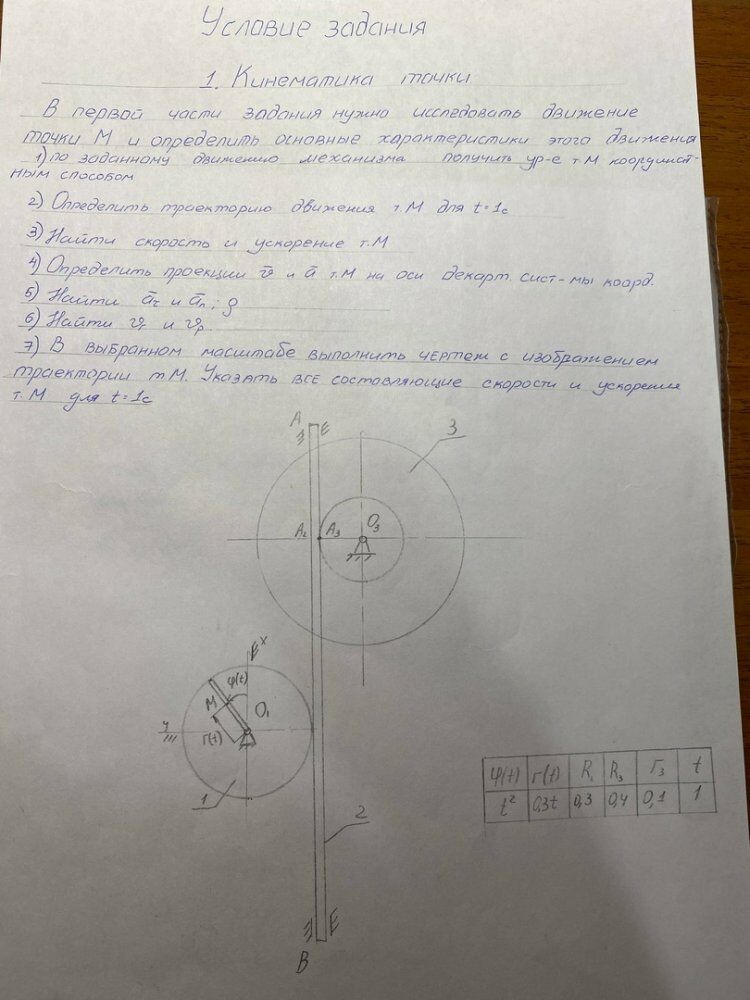 Условие задания
1. Кинематика точки
В первой части задания нужно исследовать движение
точки М и определить основные характеристики этого движения
1) по заданному движению механизма получить ур-е т.М координат-
ным способом
2) Определить траекторию движения т.М для t=1с
3) Найти скорость и ускорение т.М
4) Определить проекции v̄ и ā т.М на оси декарт. сист-мы коорд.
5) Найти āτ и ān; ρ
6) Найти vr и vp.
7) В выбранном масштабе выполнить чертеж с изображением
траектории тМ. Указать все составляющие скорости и ускорения
т.М для t=1с
A
E
3
A2 A3 O3
E x
φ(t)
M
O1
y
r(t)
1
2
φ(t) r(t) R1 R3 r3 t
t² 0,3t 0,3 0,4 0,1 1
E
B